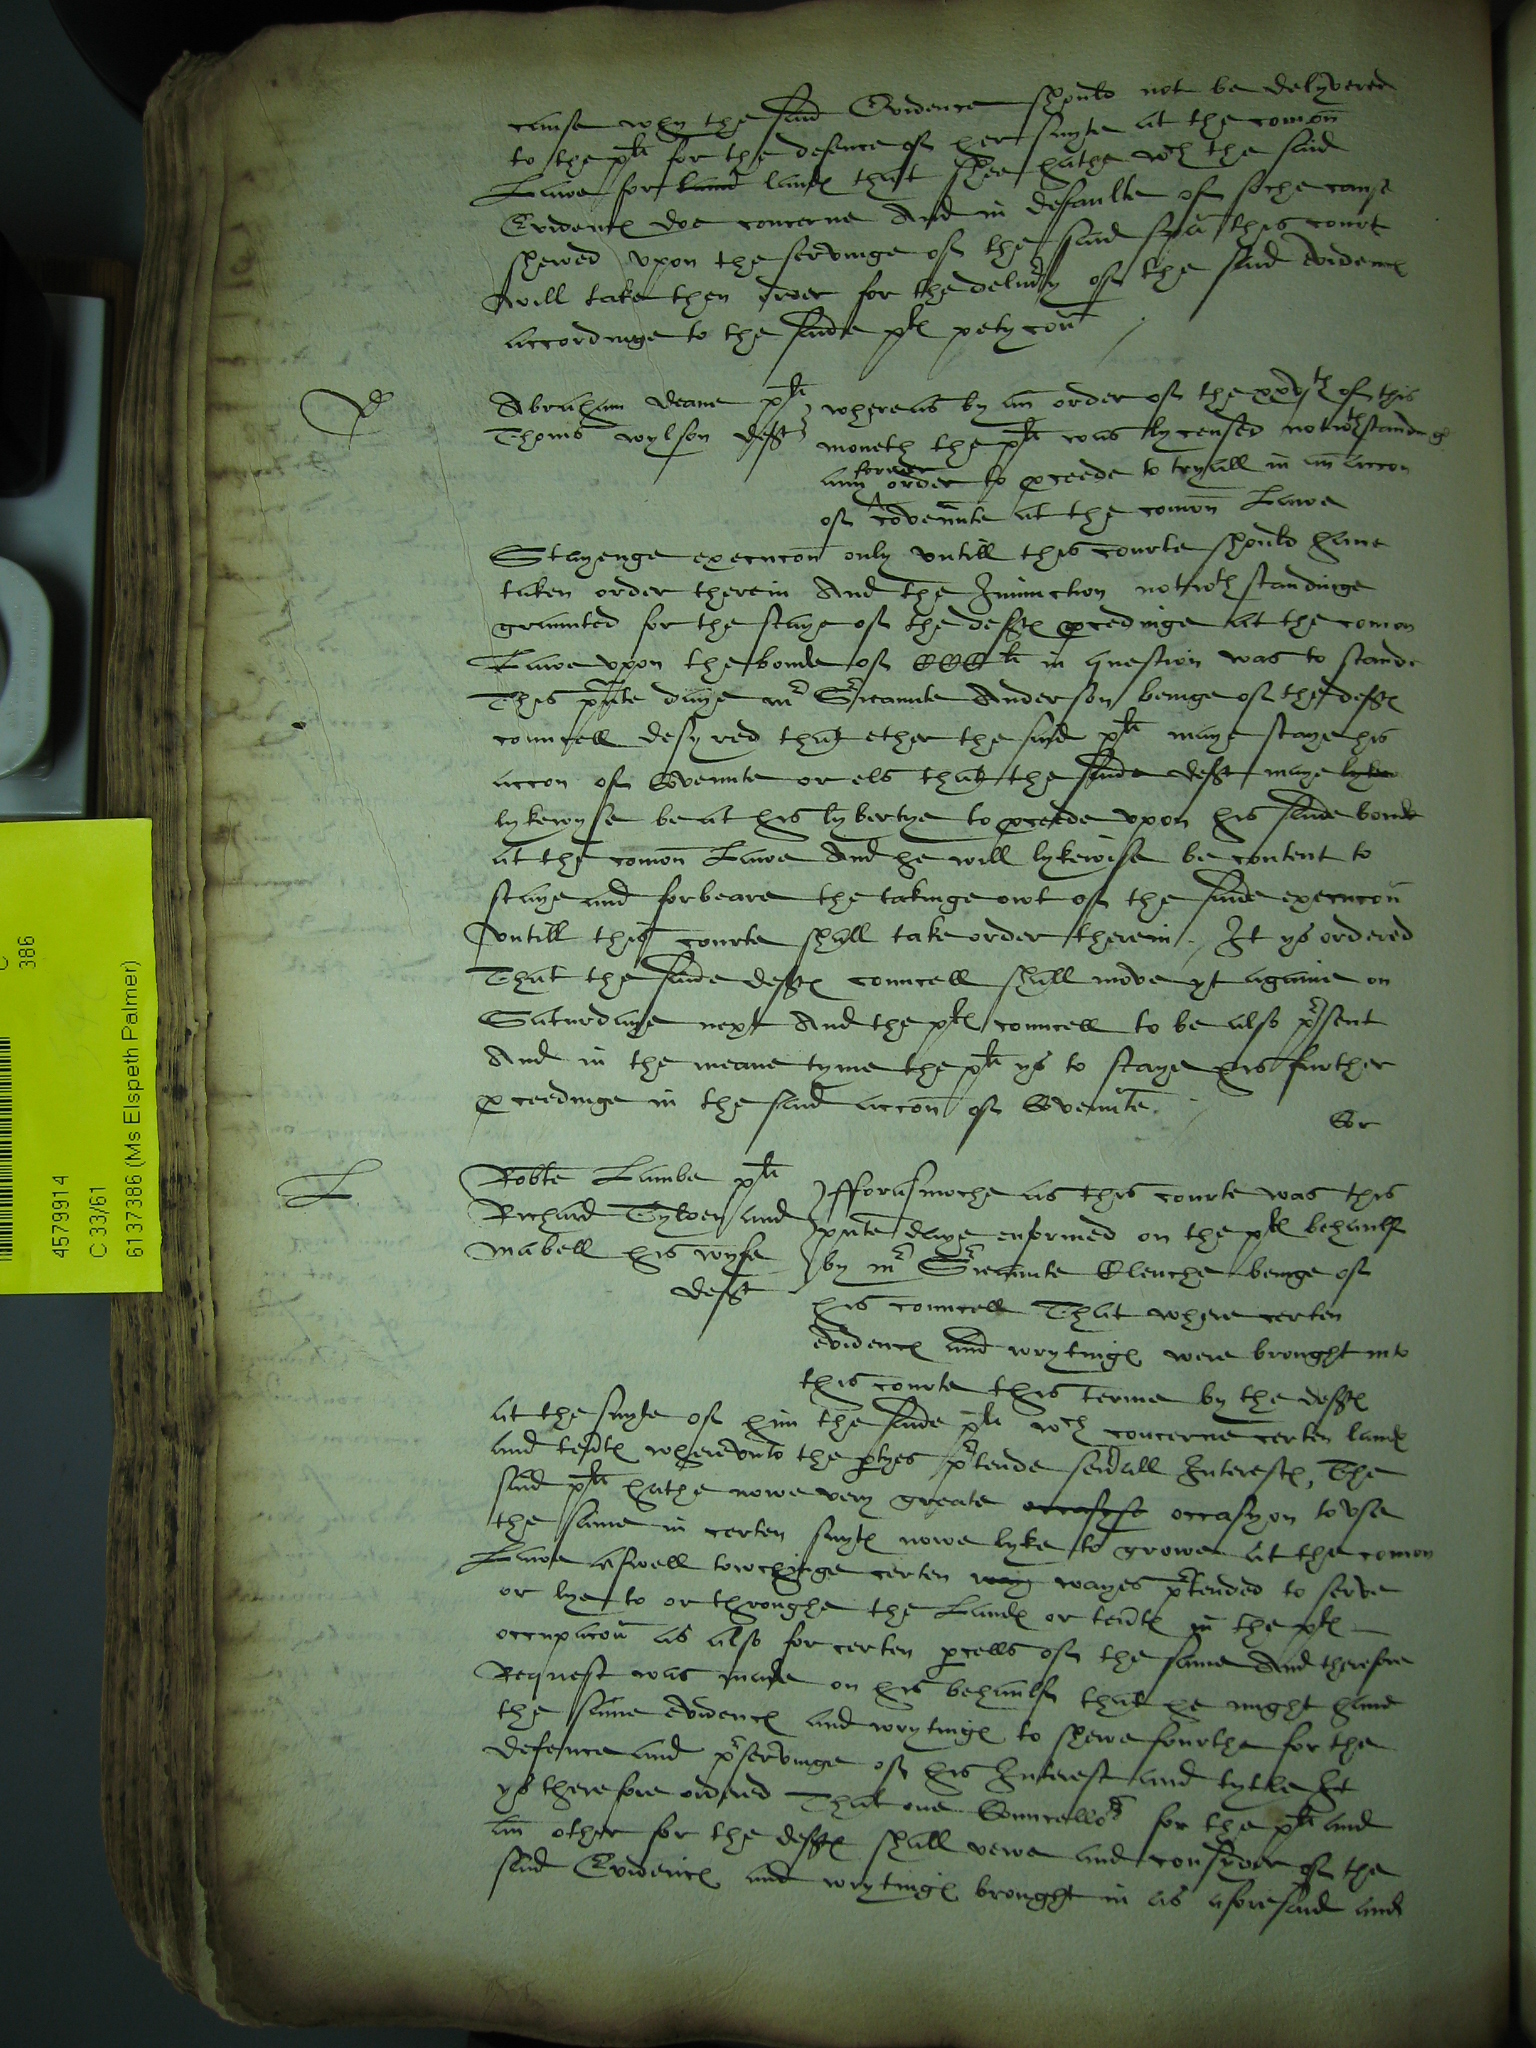 cause why the said Evidence should not be delyvered
to the plt for the defence of her suyte at the comon
Lawe for land landes that shee hathe wch the said
Evidences doe concerne And in defaulte of soche cause
shewed upon the servinge of the said suba this court
will take then order for the delivry of the said Evidences
accordinge to the saide pltes petycon
D
Abraham Deane plt
Thoms wylson deft
whereas by an order of the xxvjth of this
moneth the plt was lycensed notwthstandinge
any former order to pceede to tryall in an accon
of Covennte at the comon Lawe
Stayenge execucon only untill this Courte should have
taken order therein And the Iniunction notwthstandinge
graunted for the staye of the deftes pcedinge at the comon
Lawe upon the bonde of CCCli in question was to stande
This pnte daye mr Srieaunte Anderson beinge of the deftes
councell desyred that ether the said plt maye staye his
accon of Covennte or els that the saide deft maye lyke
lykewyse be at his lybertye to pceede upon his saide bonde
at the comon Lawe And he will lykewise be content to
staye and forbeare the takinge owt of the saide execucon
untill this courte shall take order therein. It ys ordered
That the saide deftes councell shall move yt againe on
Saturdaye next And the pltes councell to be also present
And in the meane tyme the plt ys to staye his further
pceedinge in the said accon of Covennte.
Cor
L
Robte Lambe plt
Richard Tylden and
Mabell his wyfe
deft
fforasmoche as this courte was this
pnte daye enformed on the pltes behaulf
by mr Srieaunte Clenche beinge of
his councell That where certen
evidences and wrytinges were brought into
this courte this terme by the deftes
at the suyte of him the saide plt wch concerne certen landes
and tentes wherunto the ptyes ptende sevrall Interestes, The
said plt hathe nowe very greate occasyo occasyon to use
the same in certen suytes nowe lyke to growe at the comon
Lawe aswell towchinge certen way wayes ptended to serve
or lye to or throughe the Landes or tentes in the pltes
occupacon as also for certen pcells of the same And therefore
Request was made on his behaulf that he might have
the same evidences and wrytinges to shewe fourthe for the
defence and pservinge of his Interest and tytle It
ys therefore ordered That one Councellor for the plt and
an other for the deftes shall vewe and consyder of the
said Evidences and wrytinges brought in as aforesaid and
386
4579914
C 33/61
6137386 (Ms Elspeth Palmer)